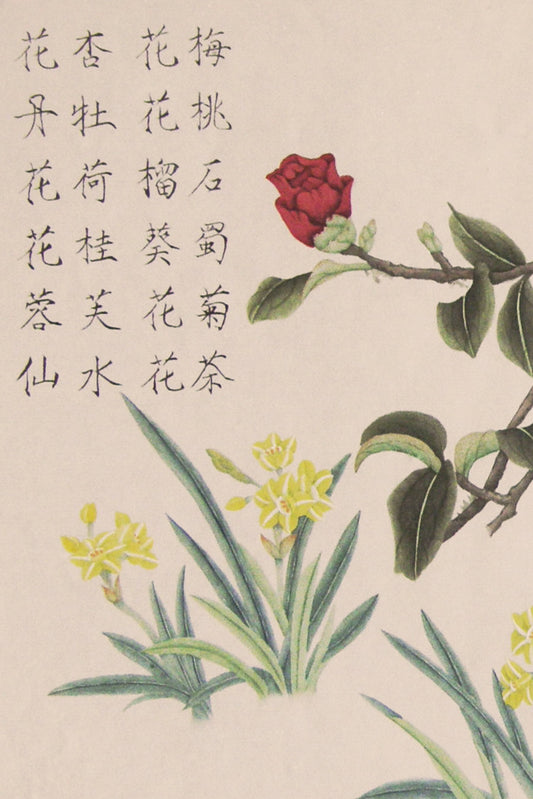 梅花 杏花
桃花 牡丹
石榴 荷花
蜀葵 桂花
菊花 芙蓉
茶花 水仙